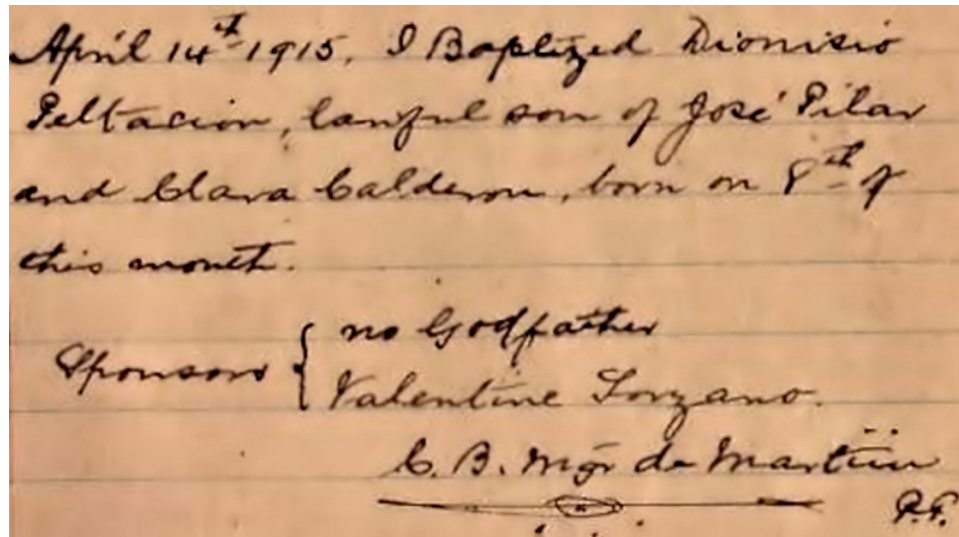 April 14th 1915. I Baptized Dionisio
Peltacion, lawful son of José Pilar
and Clara Calderon, born on 8th of
this month.
Sponsors { no Godfather
Valentine Lorzano.
C. B. Mgr de Martiin
P.P.